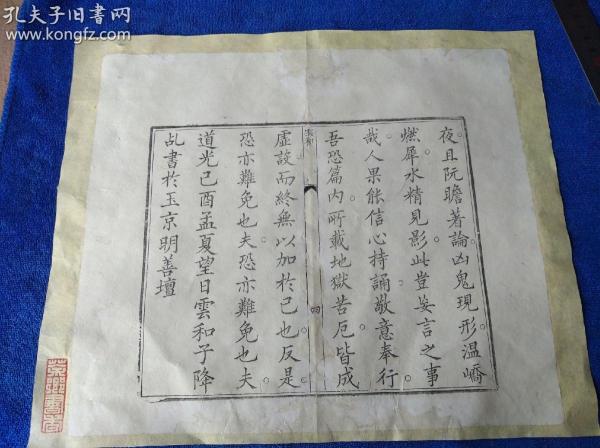 孔夫子旧书网
www.kongfz.com
夜且阮瞻著論凶鬼現形温嶠
燃犀水精見影此豈妄言之事
哉人果能信心持誦敬意奉行
吾恐篇内所載地獄苦厄皆成
虛設而終無以加於已也反是
恐亦難免也夫恐亦難免也夫
道光己酉孟夏望日雲和子降
乩書於玉京明善壇
四